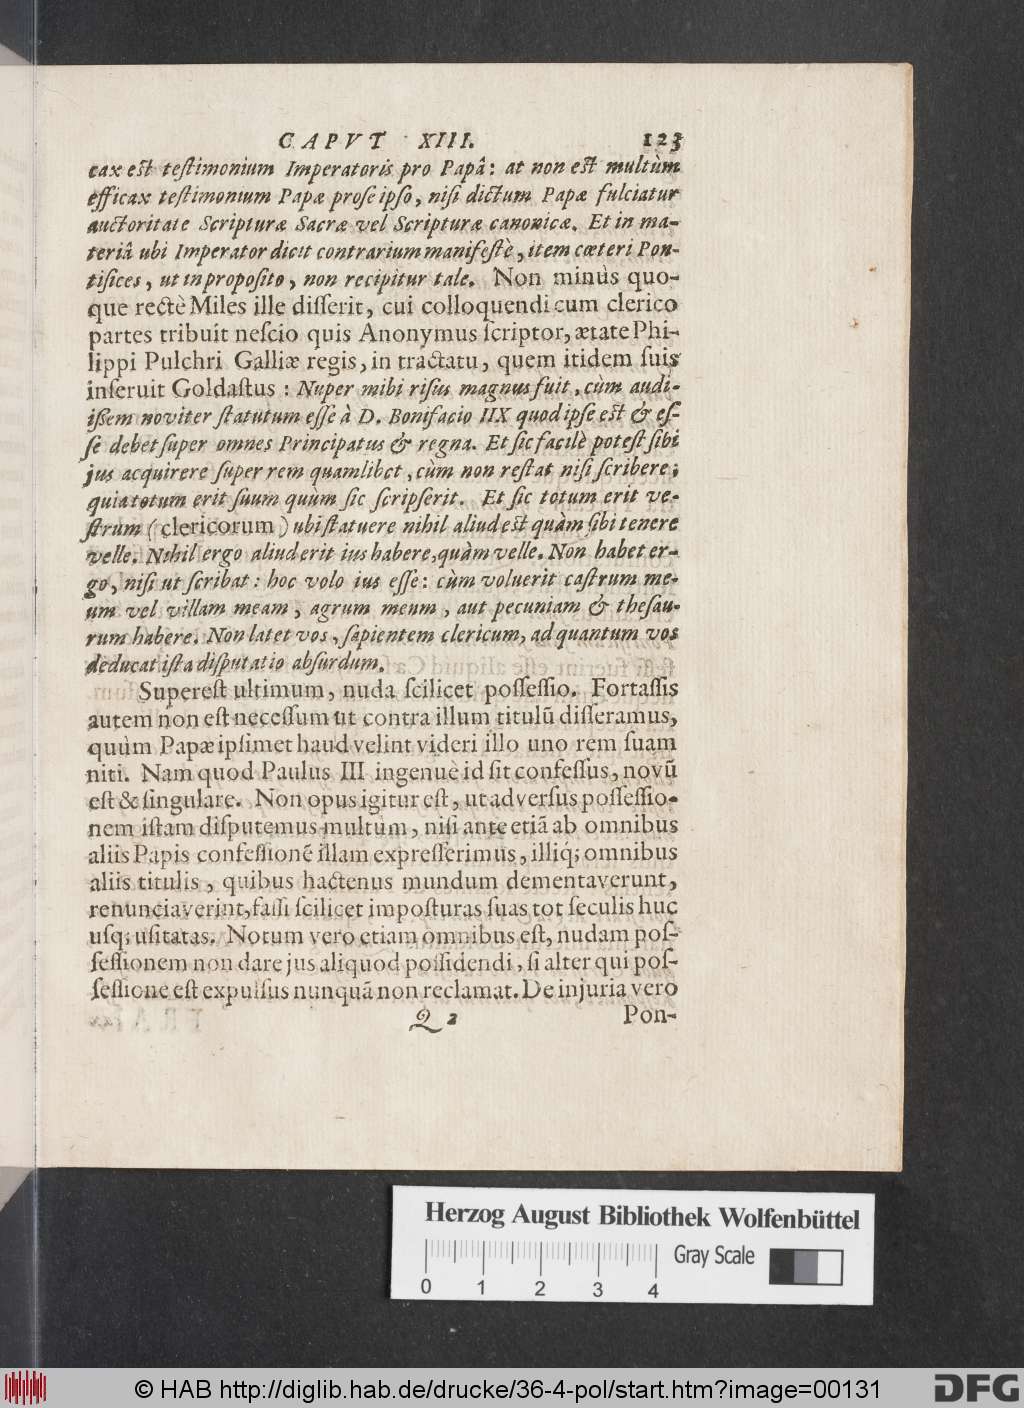 CAPVT XIII. 123
cax est testimonium Imperatoris pro Papâ: at non est multùm
efficax testimonium Papæ pro se ipso, nisi dictum Papæ fulciatur
auctoritate Scripturæ Sacræ vel Scripturæ canonicæ. Et in ma-
teriâ ubi Imperator dicit contrarium manifestè, item cæteri Pon-
tifices, ut in proposito, non recipitur tale. Non minùs quo-
que rectè Miles ille disserit, cui colloquendi cum clerico
partes tribuit nescio quis Anonymus scriptor, ætate Phi-
lippi Pulchri Galliæ regis, in tractatu, quem itidem suis
inseruit Goldastus: Nuper mihi risus magnus fuit, cùm audi-
issem noviter statutum esse à D. Bonifacio IIX quod ipse est & es-
se debet super omnes Principatus & regna. Et sic facilè potest sibi
jus acquirere super rem quamlibet, cùm non restat nisi scribere;
quia totum erit suum quùm sic scripserit. Et sic totum erit ve-
strum (clericorum) ubi statuere nihil aliud est quàm sibi tenere
velle. Nihil ergo aliud erit ius habere, quàm velle. Non habet er-
go, nisi ut scribat: hoc volo ius esse: cùm voluerit castrum me-
um vel villam meam, agrum meum, aut pecuniam & thesau-
rum habere. Non latet vos, sapientem clericum, ad quantum vos
deducat ista disputatio absurdum.
Superest ultimum, nuda scilicet possessio. Fortassis
autem non est necessum ut contra illum titulũ disseramus,
quùm Papæ ipsimet haud velint videri illo uno rem suam
niti. Nam quod Paulus III ingenuè id sit confessus, novũ
est & singulare. Non opus igitur est, ut adversus possessio-
nem istam disputemus multùm, nisi ante etiã ab omnibus
aliis Papis confessionẽ illam expresserimus, illiq́; omnibus
aliis titulis, quibus hactenus mundum dementaverunt,
renunciaverint, fassi scilicet imposturas suas tot seculis huc
usq; usitatas. Notum vero etiam omnibus est, nudam pos-
sessionem non dare jus aliquod possidendi, si alter qui pos-
sessione est expulsus nunquã non reclamat. De injuria vero
Q 2 Pon-
Herzog August Bibliothek Wolfenbüttel
Gray Scale
0 1 2 3 4
© HAB http://diglib.hab.de/drucke/36-4-pol/start.htm?image=00131
DFG